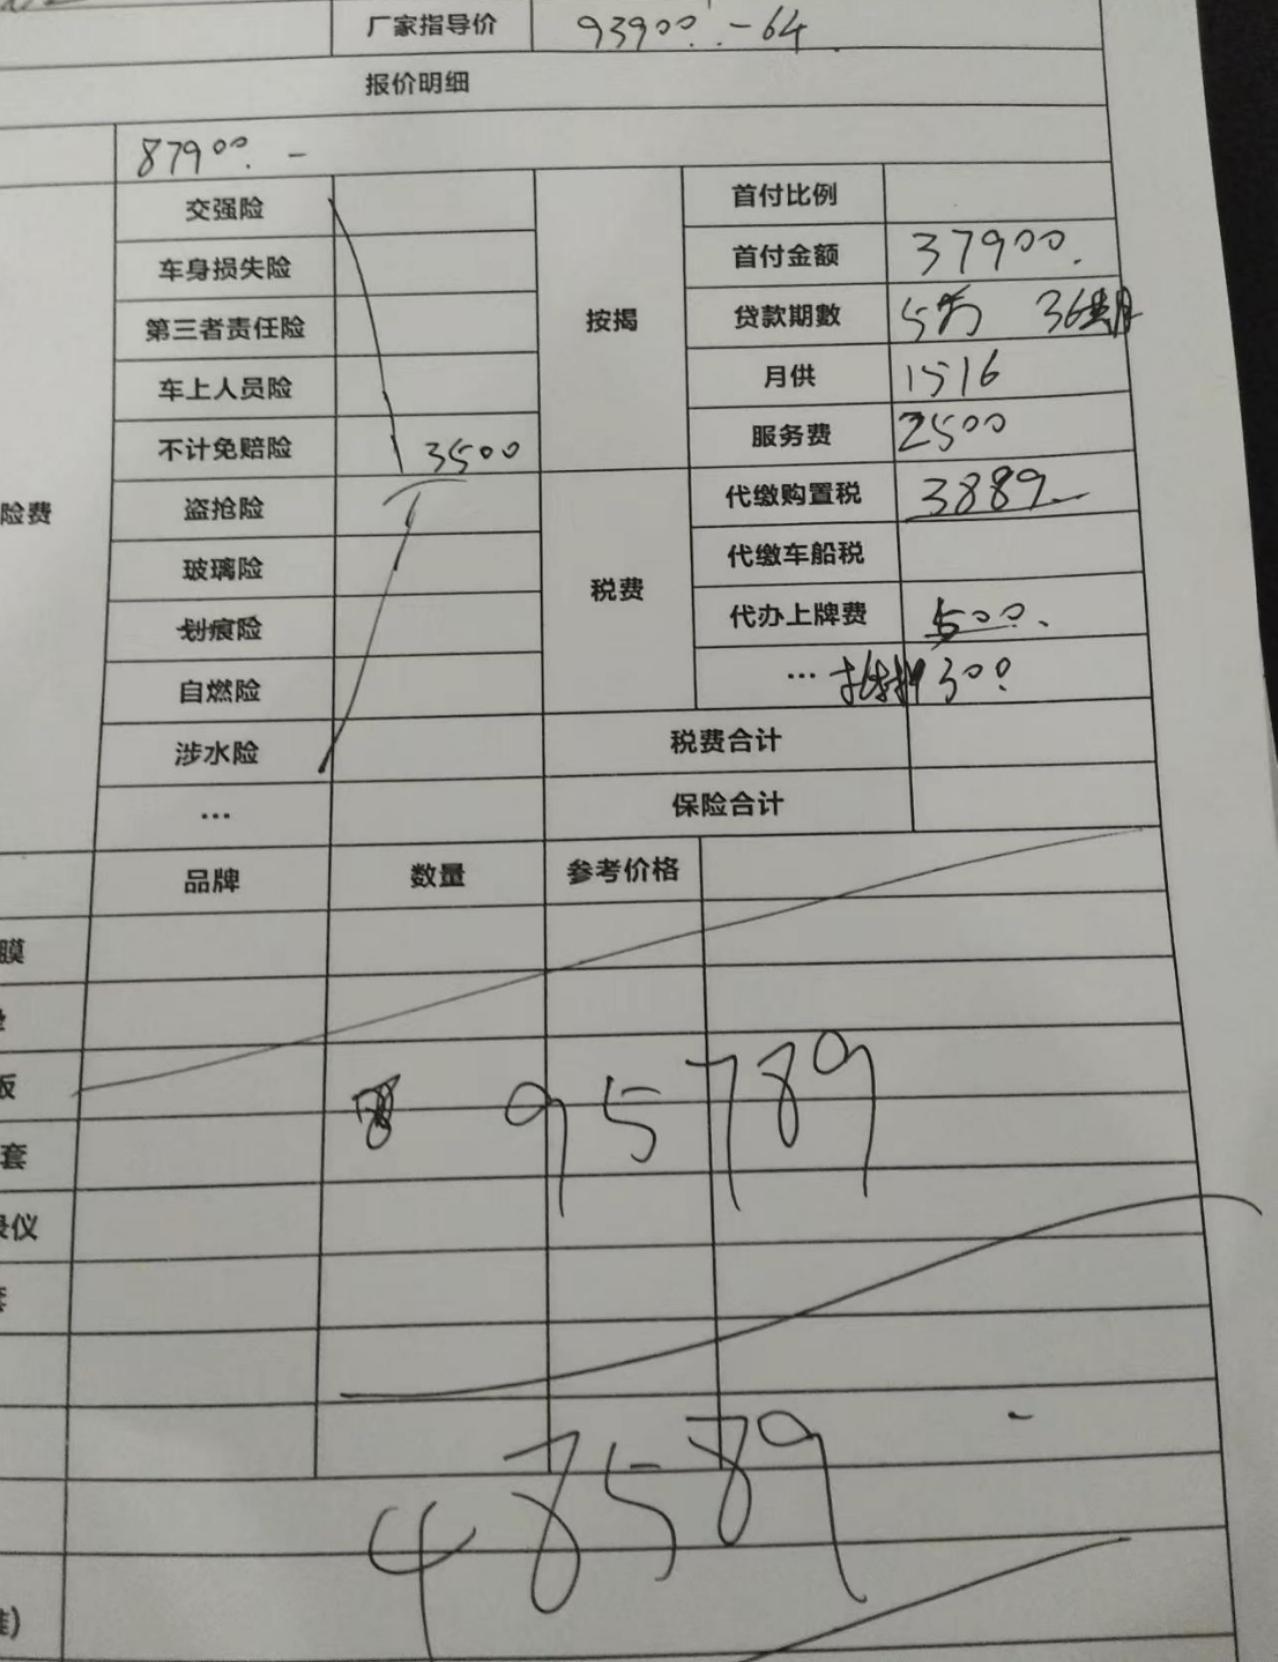 厂家指导价 93900.-64
报价明细
87900.-
交强险 按揭 首付比例
车身损失险 首付金额 37900.
第三者责任险 贷款期數 5万 36
车上人员险 月供 1516
不计免赔险 3500 服务费 2500
险费 盗抢险 税费 代缴购置税 3889
玻璃险 代缴车船税
划痕险 代办上牌费 500.
自燃险 … 300
涉水险 税费合计
… 保险合计
品牌 数量 参考价格
膜
板
套 95789
录仪
套
48589